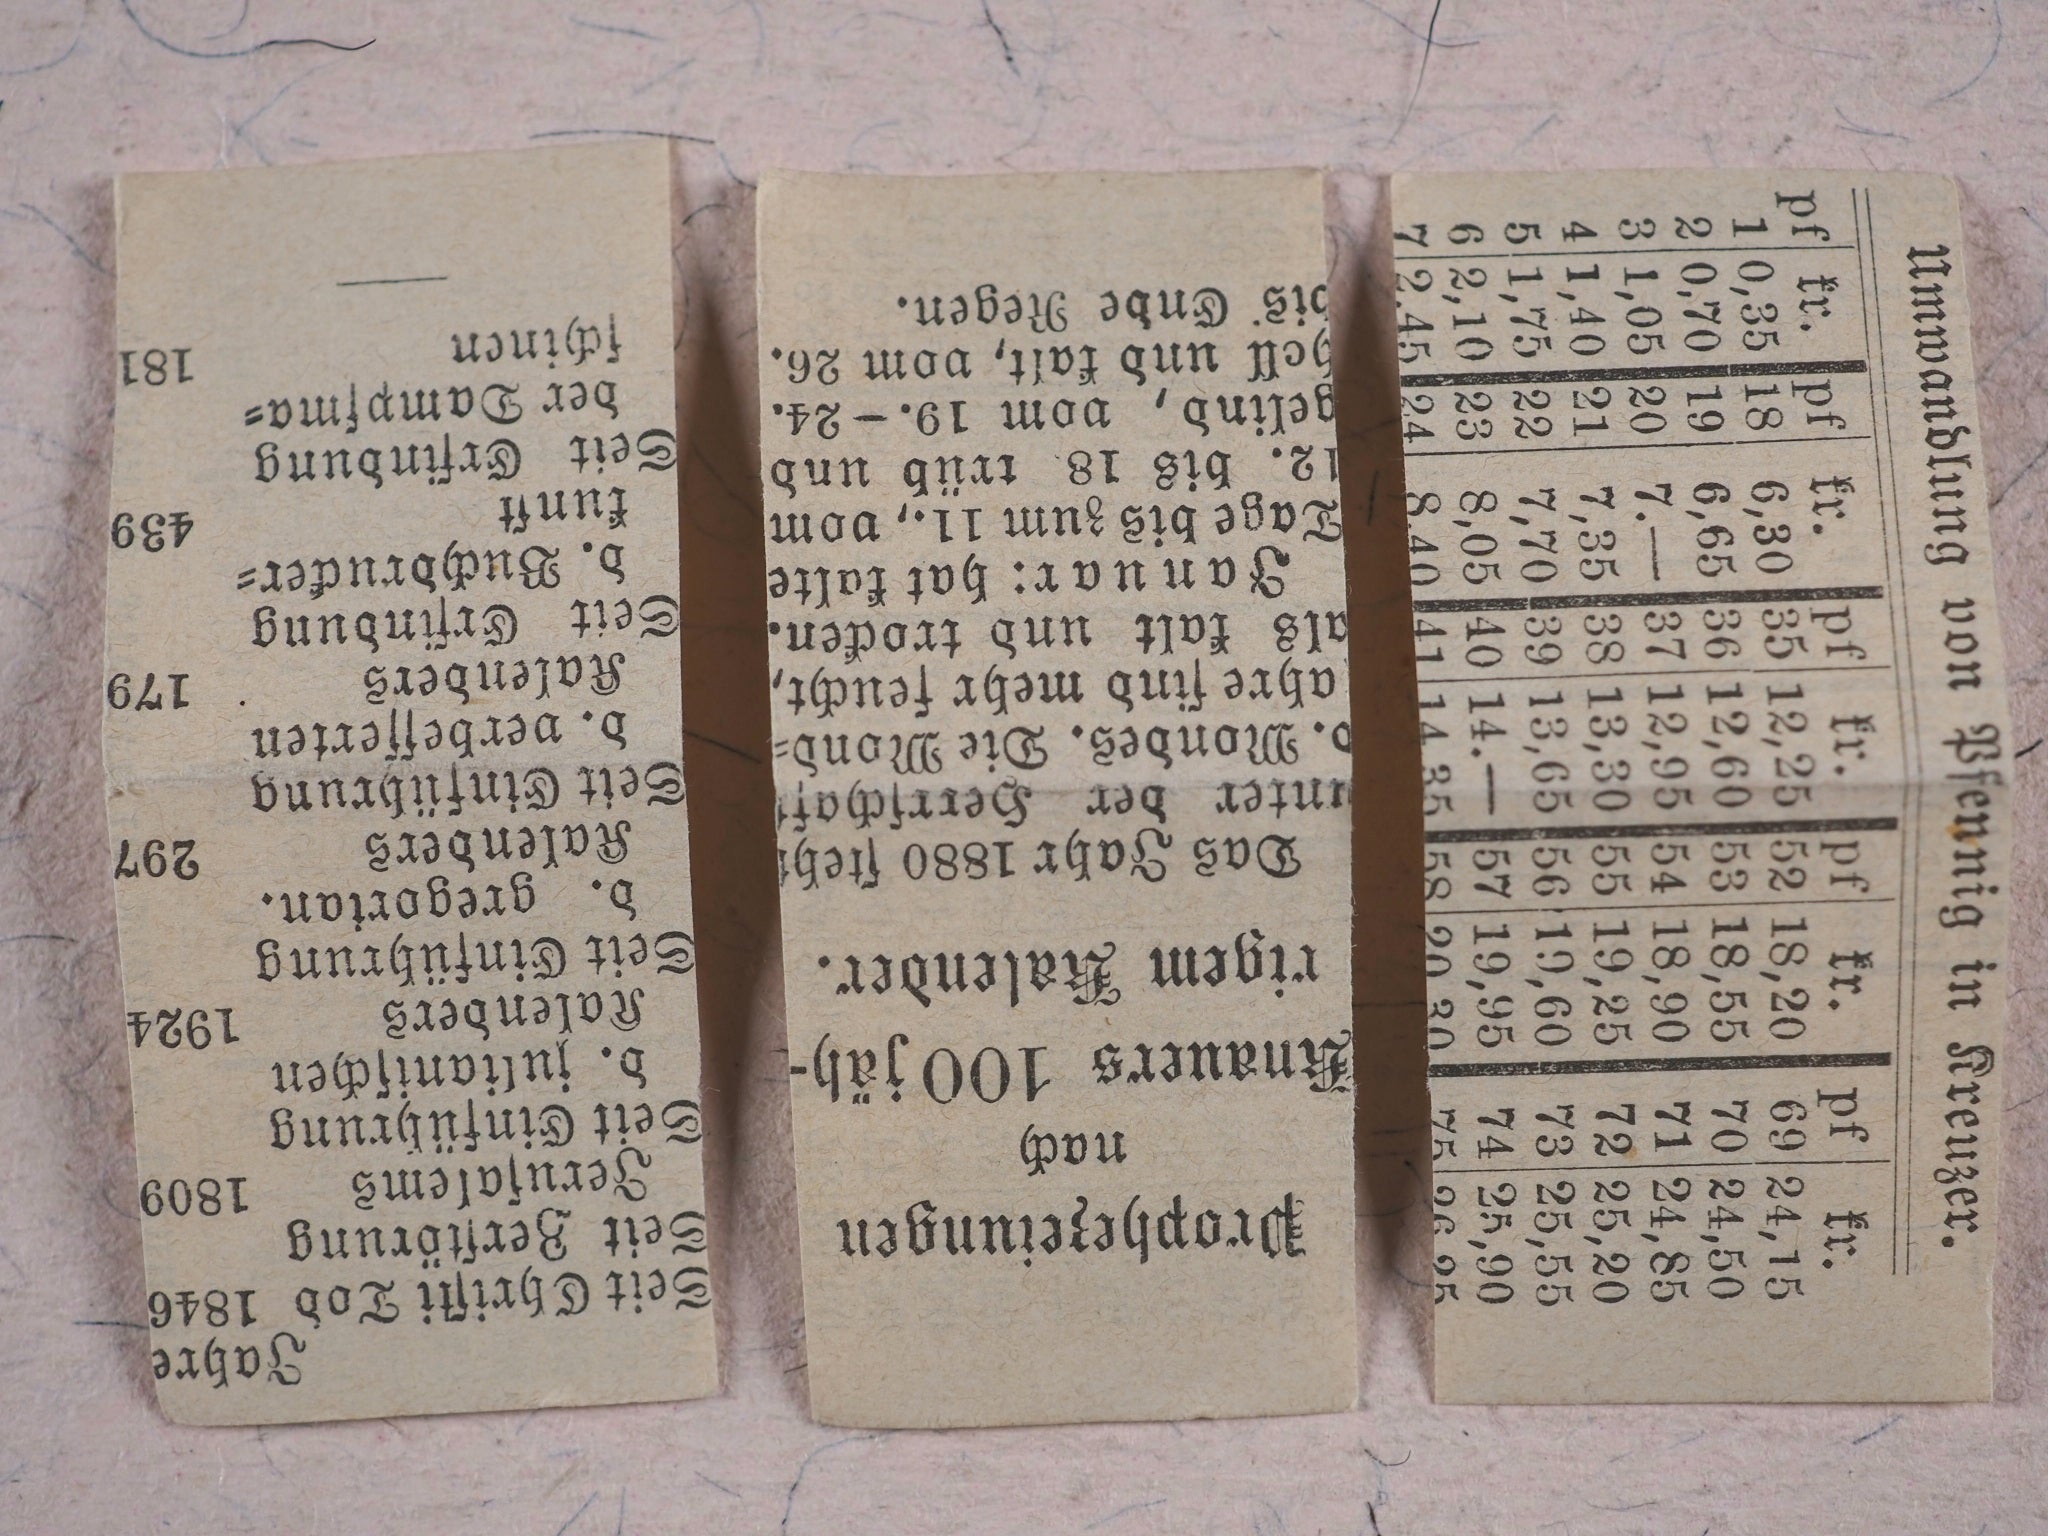 Jahre
Seit Christi Tod 1846
Seit Zerstörung
Jerusalems 1809
Seit Einführung
d. julianischen
Kalenders 1924
Seit Einführung
d. gregorian.
Kalenders 297
Seit Einführung
d. verbesserten
Kalenders 179
Seit Erfindung
d. Buchdrucker=
kunst 439
Seit Erfindung
der Dampfma=
schinen 181
Prophezeiungen
nach
Knauers 100jäh-
rigem Kalender.
Das Jahr 1880 steht
unter der Herrschaft
d. Mondes. Die Mond=
jahre sind mehr feucht,
als kalt und trocken.
Januar: hat kalte
Tage bis zum 11., vom
12. bis 18 trüb und
gelind, vom 19.—24.
hell und kalt, vom 26.
bis Ende Regen.
Umwandlung von Pfennig in Kreuzer.
pf kr. pf kr. pf kr. pf kr. pf kr.
1 0,35 18 6,30 35 12,25 52 18,20 69 24,15
2 0,70 19 6,65 36 12,60 53 18,55 70 24,50
3 1,05 20 7.— 37 12,95 54 18,90 71 24,85
4 1,40 21 7,35 38 13,30 55 19,25 72 25,20
5 1,75 22 7,70 39 13,65 56 19,60 73 25,55
6 2,10 23 8,05 40 14.— 57 19,95 74 25,90
7 2,45 24 8,40 41 14,35 58 20,30 75 26,25